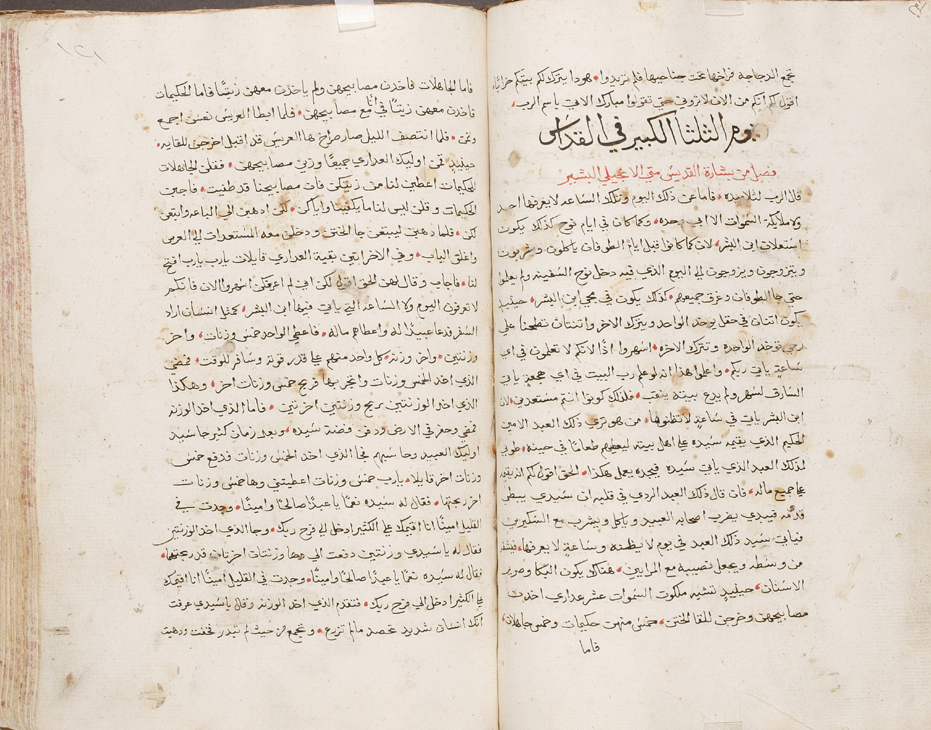 تجمع الدجاجه فراخها تحت جناحيها فلم تريدوا هوذا يترك لكم بيتكم خرابًا
اقول لكم انكم من الان لا تروني حتي تقولوا مبارك الاتي باسم الرب
يوم الثلثا الكبير في القداس
فصل من بشارة القديس متي الانجيلي البشير
قال الرب لتلاميذه فاما عن ذلك اليوم وتلك الساعه لا يعرفها احد
ولا ملايكة السموات الا ابي وحده وكما كانت في ايام نوح كذلك يكون
استعلان ابن البشر لان كما كانوا قبل ايام الطوفان ياكلون ويشربون
ويتزوجون ويزوجون الي اليوم الذي فيه دخل نوح السفينه ولم يعلموا
حتي جا الطوفان وغرف جميعهم كذلك يكون في مجي ابن البشر حينيد
يكون اتنان في حقل يوخد الواحد ويترك الاخر واتنتان تطحنان علي
رحي توخد الواحده وتترك الاخره اسهروا اذًا لانكم لا تعلمون في اي
ساعةٍ ياتي ربكم واعلموا هذا انه لو علم رب البيت في اي هجعةٍ ياتي
السارق لسهر ولم يدع بيته ينقب فلذلك كونوا انتم مستعدين لان
ابن البشر ياتي في ساعةٍ لا تظنونها من هو تري ذلك العبد الامين
الحكيم الذي يقيمه سيده علي اهل بيته ليعطيهم طعامًا في حينه طوبي
لذلك العبد الذي ياتي سيده فيجده يعمل هكذا الحق اقول لكم انه يقيمه
علي جميع ماله فان قال ذلك العبد الردي في قلبه ان سيدي يبطي
قدومه فيبدي يضرب اصحابه العبيد وياكل ويشرب مع السكيرين
فياتي سيد ذلك العبد في يوم لا يظنه وساعةٍ لا يعرفها فيشقه
من وسطه ويجعل نصيبه مع المرايين هناك يكون البكا وصرير
الاسنان حينيدٍ تشبه ملكوت السموات عشر عداري اخدت
مصابيحهن وخرجن للقا الختن خمس منهن حكيمات وخمس جاهلات
فاما
١٢١
فاما الجاهلات فاخدن مصابيحهن ولم ياخدن معهن زيتًا فاما الحكيمات
فاخدن معهن زيتًا في اناء مع مصابيحهن فلما ابطا العريس نعسن اجمع
ونمن فلما انتصف الليل صار صراخ ها العريس قد اقبل اخرجن للقايه
حينيدٍ قمن اوليك العداري جميعًا وزين مصابيحهن فقلن الجاهلات
للحكيمات اعطين لنا من زيتكن فان مصابيحنا قد طفيت فاجبن
الحكيمات وقلن ليس لنا ما يكفينا واياكن لكن ادهبن الي الباعه وابتعن
لكن فلما دهبن ليبتعن جا الختن ودخلن معه المستعدات الي العرس
واغلق الباب وفي الاخر اتين بقية العداري قايلات يا رب يا رب افتح
لنا فاجاب وقال لهن الحق اقول لكن اني لم اعرفكن اسهروا الان فانكم
لا تعرفون اليوم ولا الساعه التي ياتي فيها ابن البشر كمثل انسان اراد
السفر فدعا عبيدًا له واعطاهم ماله فاعطي الواحد خمس وزنات واخر
وزنتين واخر وزنه كل واحد منهم علي قدر قوته وسافر للوقت فمضي
الذي اخد الخمس وزنات واتجر بها فربح خمس وزنات اخر وهكذا
الذي اخد الوزنتين ربح وزنتين اخرتين فاما الذي اخد الوزنه
فمضي وحفر في الارض ودفن فضة سيده وبعد زمان كثير جا سيد
اوليك العبيد وحاسبهم فجا الذي اخد الخمس وزنات فدفع خمس
وزنات اخر قايلا يا رب خمس وزنات اعطيتني وها خمس وزنات
اخر ربحتها فقال له سيده نعمًا يا عبدًا صالحًا وامينًا وجدت في
القليل امينًا انا اقيمك علي الكثير ادخل الي فرح ربك وجا الذي اخد الوزنتين
فقال له يا سيدي وزنتين دفعت الي وها وزنتان اخرتان قد ربحتهما
فقال له سيده نعمًا يا عبدًا صالحًا وامينًا وجدت في القليل امينًا انا اقيمك
علي الكثير ادخل الي فرح ربك فتقدم الذي اخد الوزنه وقال يا سيدي عرفت
انك انسان شديد تحصد مالم تزرع وتجمع من حيث لم تبدر فخفت ودهبت